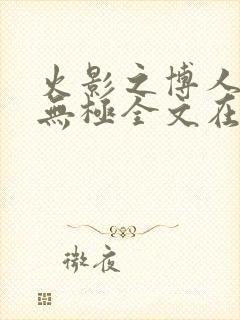 火影之博人
無極全文在
微夜